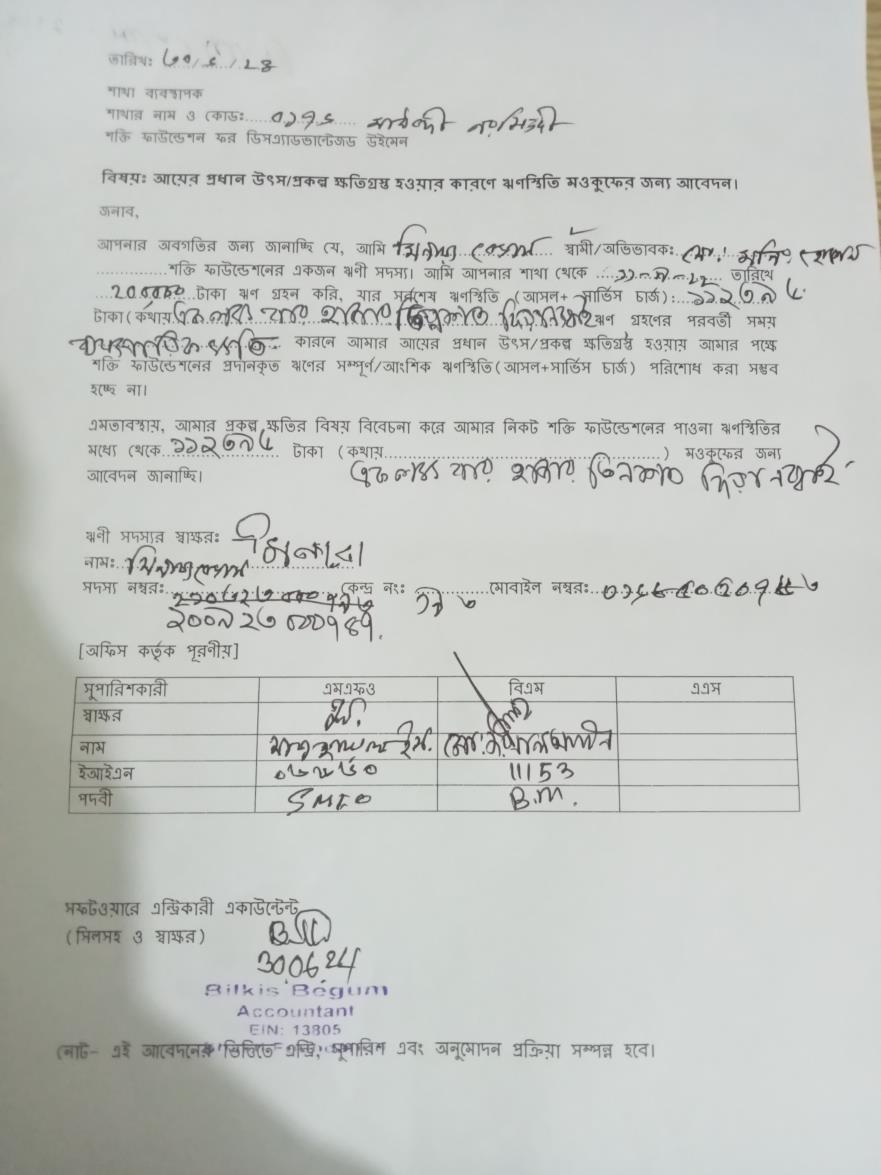 তারিখ: ৩০/৬/২৪
শাখা ব্যবস্থাপক
শাখার নাম ও কোড: ০১৭৬ মাধবদী নরসিংদী
শক্তি ফাউন্ডেশন ফর ডিসএ্যাডভান্টেজড উইমেন
বিষয়: আয়ের প্রধান উৎস/প্রকল্প ক্ষতিগ্রস্ত হওয়ার কারণে ঋণস্থিতি মওকুফের জন্য আবেদন।
জনাব,
আপনার অবগতির জন্য জানাচ্ছি যে, আমি মিনারা বেগম স্বামী/অভিভাবক: মো: মনির হোসেন
শক্তি ফাউন্ডেশনের একজন ঋণী সদস্য। আমি আপনার শাখা থেকে তারিখে
200000 টাকা ঋণ গ্রহন করি, যার সর্বশেষ ঋণস্থিতি (আসল+ সার্ভিস চার্জ):
টাকা (কথায় এক লক্ষ বার হাজার তিনশত ঋণ গ্রহণের পরবর্তী সময়
ব্যবসায়িক ক্ষতি কারনে আমার আয়ের প্রধান উৎস/প্রকল্প ক্ষতিগ্রস্থ হওয়ায় আমার পক্ষে
শক্তি ফাউন্ডেশনের প্রদানকৃত ঋণের সম্পূর্ণ/আংশিক ঋণস্থিতি(আসল+সার্ভিস চার্জ) পরিশোধ করা সম্ভব
হচ্ছে না।
এমতাবস্থায়, আমার প্রকল্প ক্ষতির বিষয় বিবেচনা করে আমার নিকট শক্তি ফাউন্ডেশনের পাওনা ঋণস্থিতির
মধ্যে থেকে টাকা (কথায়) মওকুফের জন্য
আবেদন জানাচ্ছি। এক লক্ষ বার হাজার তিনশত
ঋণী সদস্যর স্বাক্ষর: মিনারা
নাম: মিনারা বেগম
সদস্য নম্বর: কেন্দ্র নং: মোবাইল নম্বর:
[অফিস কর্তৃক পূরণীয়]
সুপারিশকারী এমএফও বিএম এএস
স্বাক্ষর
নাম
ইআইএন 11153
পদবী SMFO B.M.
সফটওয়ারে এন্ট্রিকারী একাউন্টেন্ট
(সিলসহ ও স্বাক্ষর)
300624
Bilkis Begum
Accountant
EIN: 13805
নোট- এই আবেদনের ভিত্তিতে এন্ট্রি, সুপারিশ এবং অনুমোদন প্রক্রিয়া সম্পন্ন হবে।